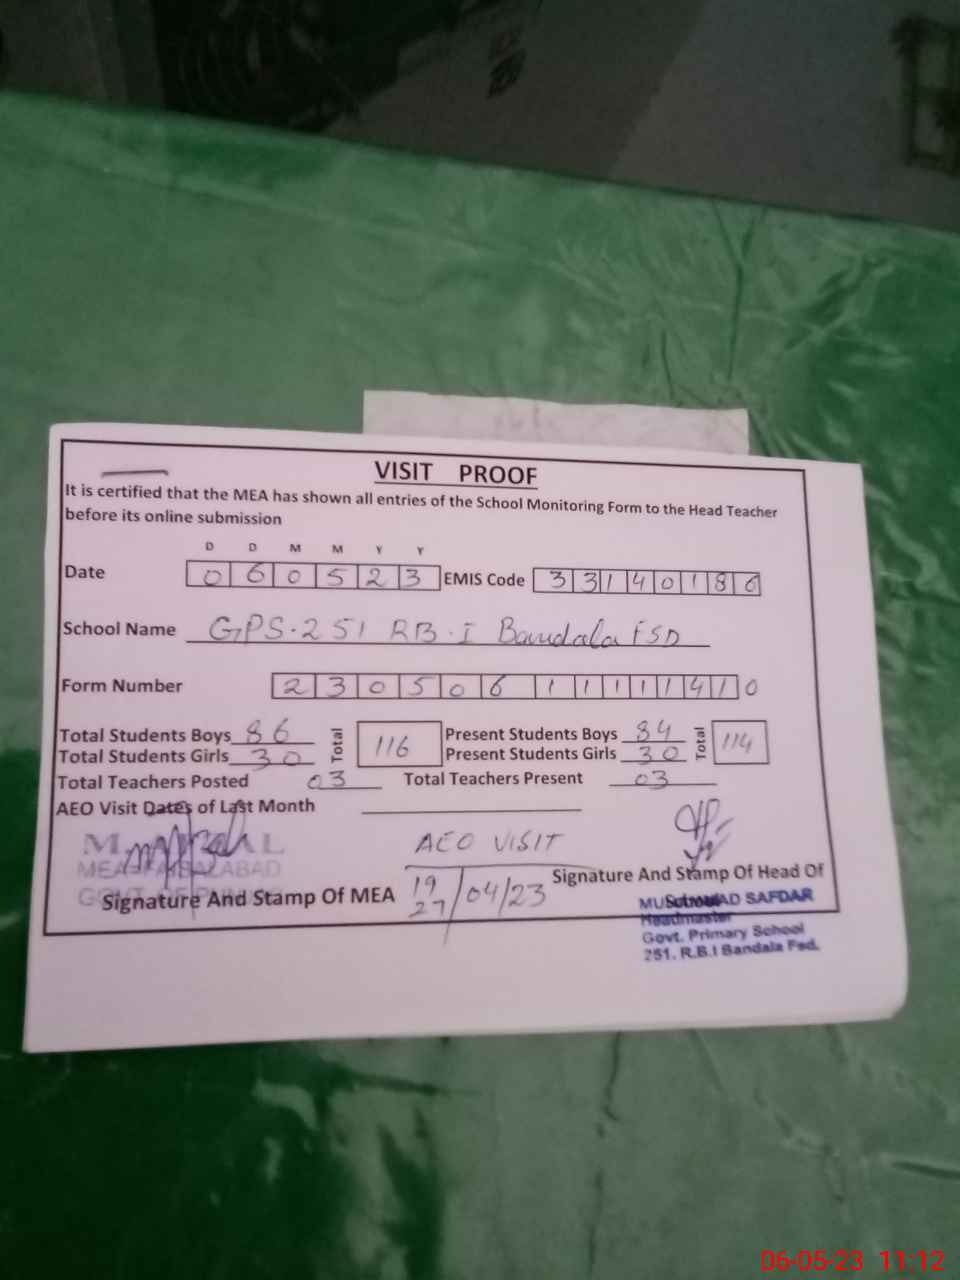 VISIT PROOF
It is certified that the MEA has shown all entries of the School Monitoring Form to the Head Teacher
before its online submission
D D M M Y Y
Date 0 6 0 5 2 3 EMIS Code 3 3 1 4 0 1 8 6
School Name GPS.251 RB.I Bandala FSD
Form Number 2 3 0 5 0 6 1 1 1 1 1 4 1 0
Total Students Boys 86 Total 116 Present Students Boys 84 Total 114
Total Students Girls 30 Present Students Girls 30
Total Teachers Posted 03 Total Teachers Present 03
AEO Visit Dates of Last Month
AEO VISIT
MEA FAISALABAD
Signature And Stamp Of MEA 19
27 /04/23
Signature And Stamp Of Head Of
School
SAFDAR
Headmaster
Govt. Primary School
251. R.B.I Bandala Fsd.
06-05-23 11:12